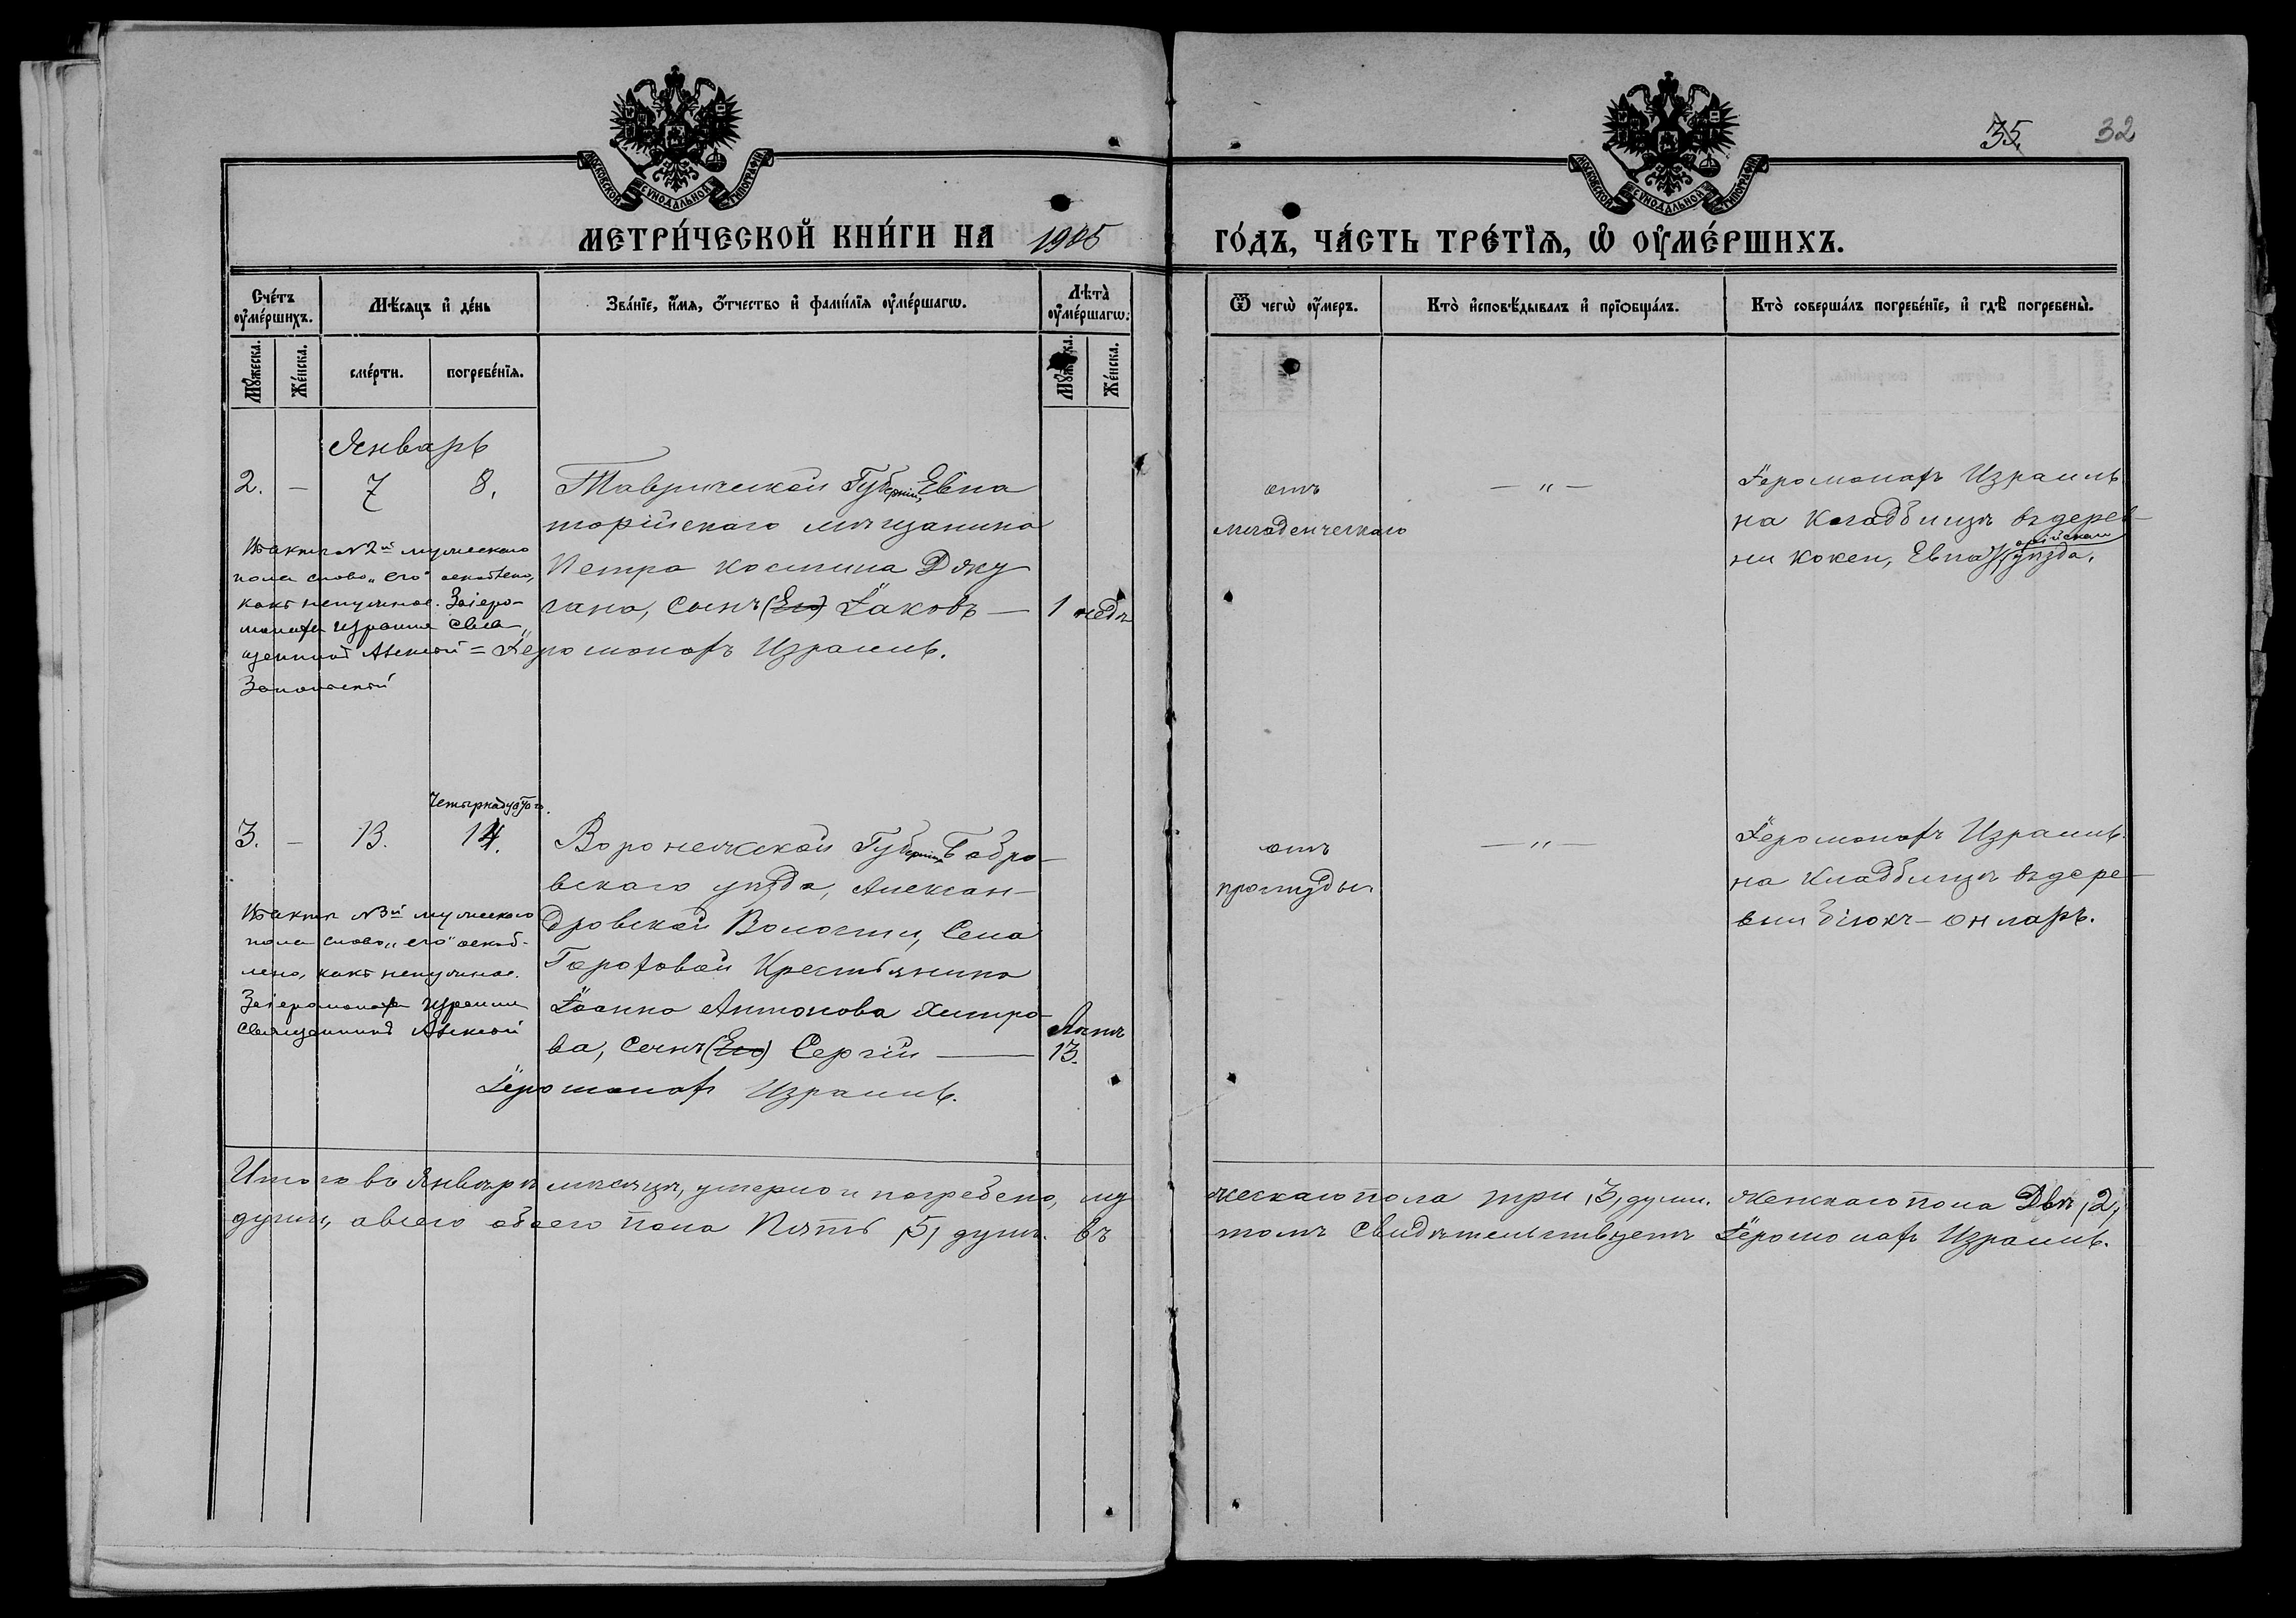 35. 32
МОСКОВСКОЙ СѴНОДАЛЬНОЙ ТИПОГРАФІИ
МОСКОВСКОЙ СѴНОДАЛЬНОЙ ТИПОГРАФІИ
МЕТРИ́ЧЕСКОЙ КНИ́ГИ НА 1905 ГО́ДЪ, ЧА́СТЬ ТРЕ́ТЇѦ, Ѡ҆ ОУ҆МЕ́РШИХЪ.
Сче́тъ оу҆ме́ршихъ.
Мѣсѧцъ и҆ де́нь
Зва́нїе, и҆́мѧ, ѻ҆́тчество и҆ фами́лїѧ оу҆ме́ршагѡ.
Лѣта̀ оу҆ме́ршагѡ.
Ѿ чегѡ̀ оу҆́меръ.
Кто̀ и҆сповѣ́дывалъ и҆ прїѻбща́лъ.
Кто̀ соверша́лъ погребе́нїе, и҆ гдѣ̀ погребены̀.
Мꙋ́жеска.
Же́нска.
сме́рти.
погребе́нїѧ.
Мꙋ́жеска.
Же́нска.
Январь
2. — 7 8.
Таврической Губерніи, Евпа
торійскаго мѣщанина
Петра Костина Джу
гана, Сынъ (Его) Іаковъ — 1 недѣ
отъ
младенческаго
— „ —
Іеромонахъ Израиль
на Кладбищѣ въ дерев-
ни Кокеи, Евпаторійскаго
уѣзда.
Въ актѣ № 2й мужескаго
пола слово „его" оскоблено,
какъ ненужное. За іеро-
монаха Израиля Свя-
щенникъ Алексій
= Іеромонахъ Израиль.
Четырнадцатаго.
3. — 13. 14.
Воронежской Губерніи Бобро-
вскаго уѣзда, Алексан-
дровской Волости, Села
Гороховой Крестьянина
Іоанна Антонова Хитро-
ва, Сынъ (Его) Сергій — Лѣтъ 13.
Іеромонахъ Израиль.
отъ
простуды
— „ —
Іеромонахъ Израиль
на Кладбищѣ въ дере-
вни Біюкъ-онларъ.
Въ актѣ № 3й мужескаго
пола слово „его" оскоб-
лено, какъ ненужное.
За іеромонаха Израиля
Священникъ Алексій
Итого во Январѣ мѣсяцѣ, умерло и погребено, му
жескаго пола три, 3, души. Женскаго пола Двѣ, 2,
души, а всего обоего пола Пять, 5, душъ. въ
томъ Свидѣтельствуетъ Іеромонахъ Израиль.